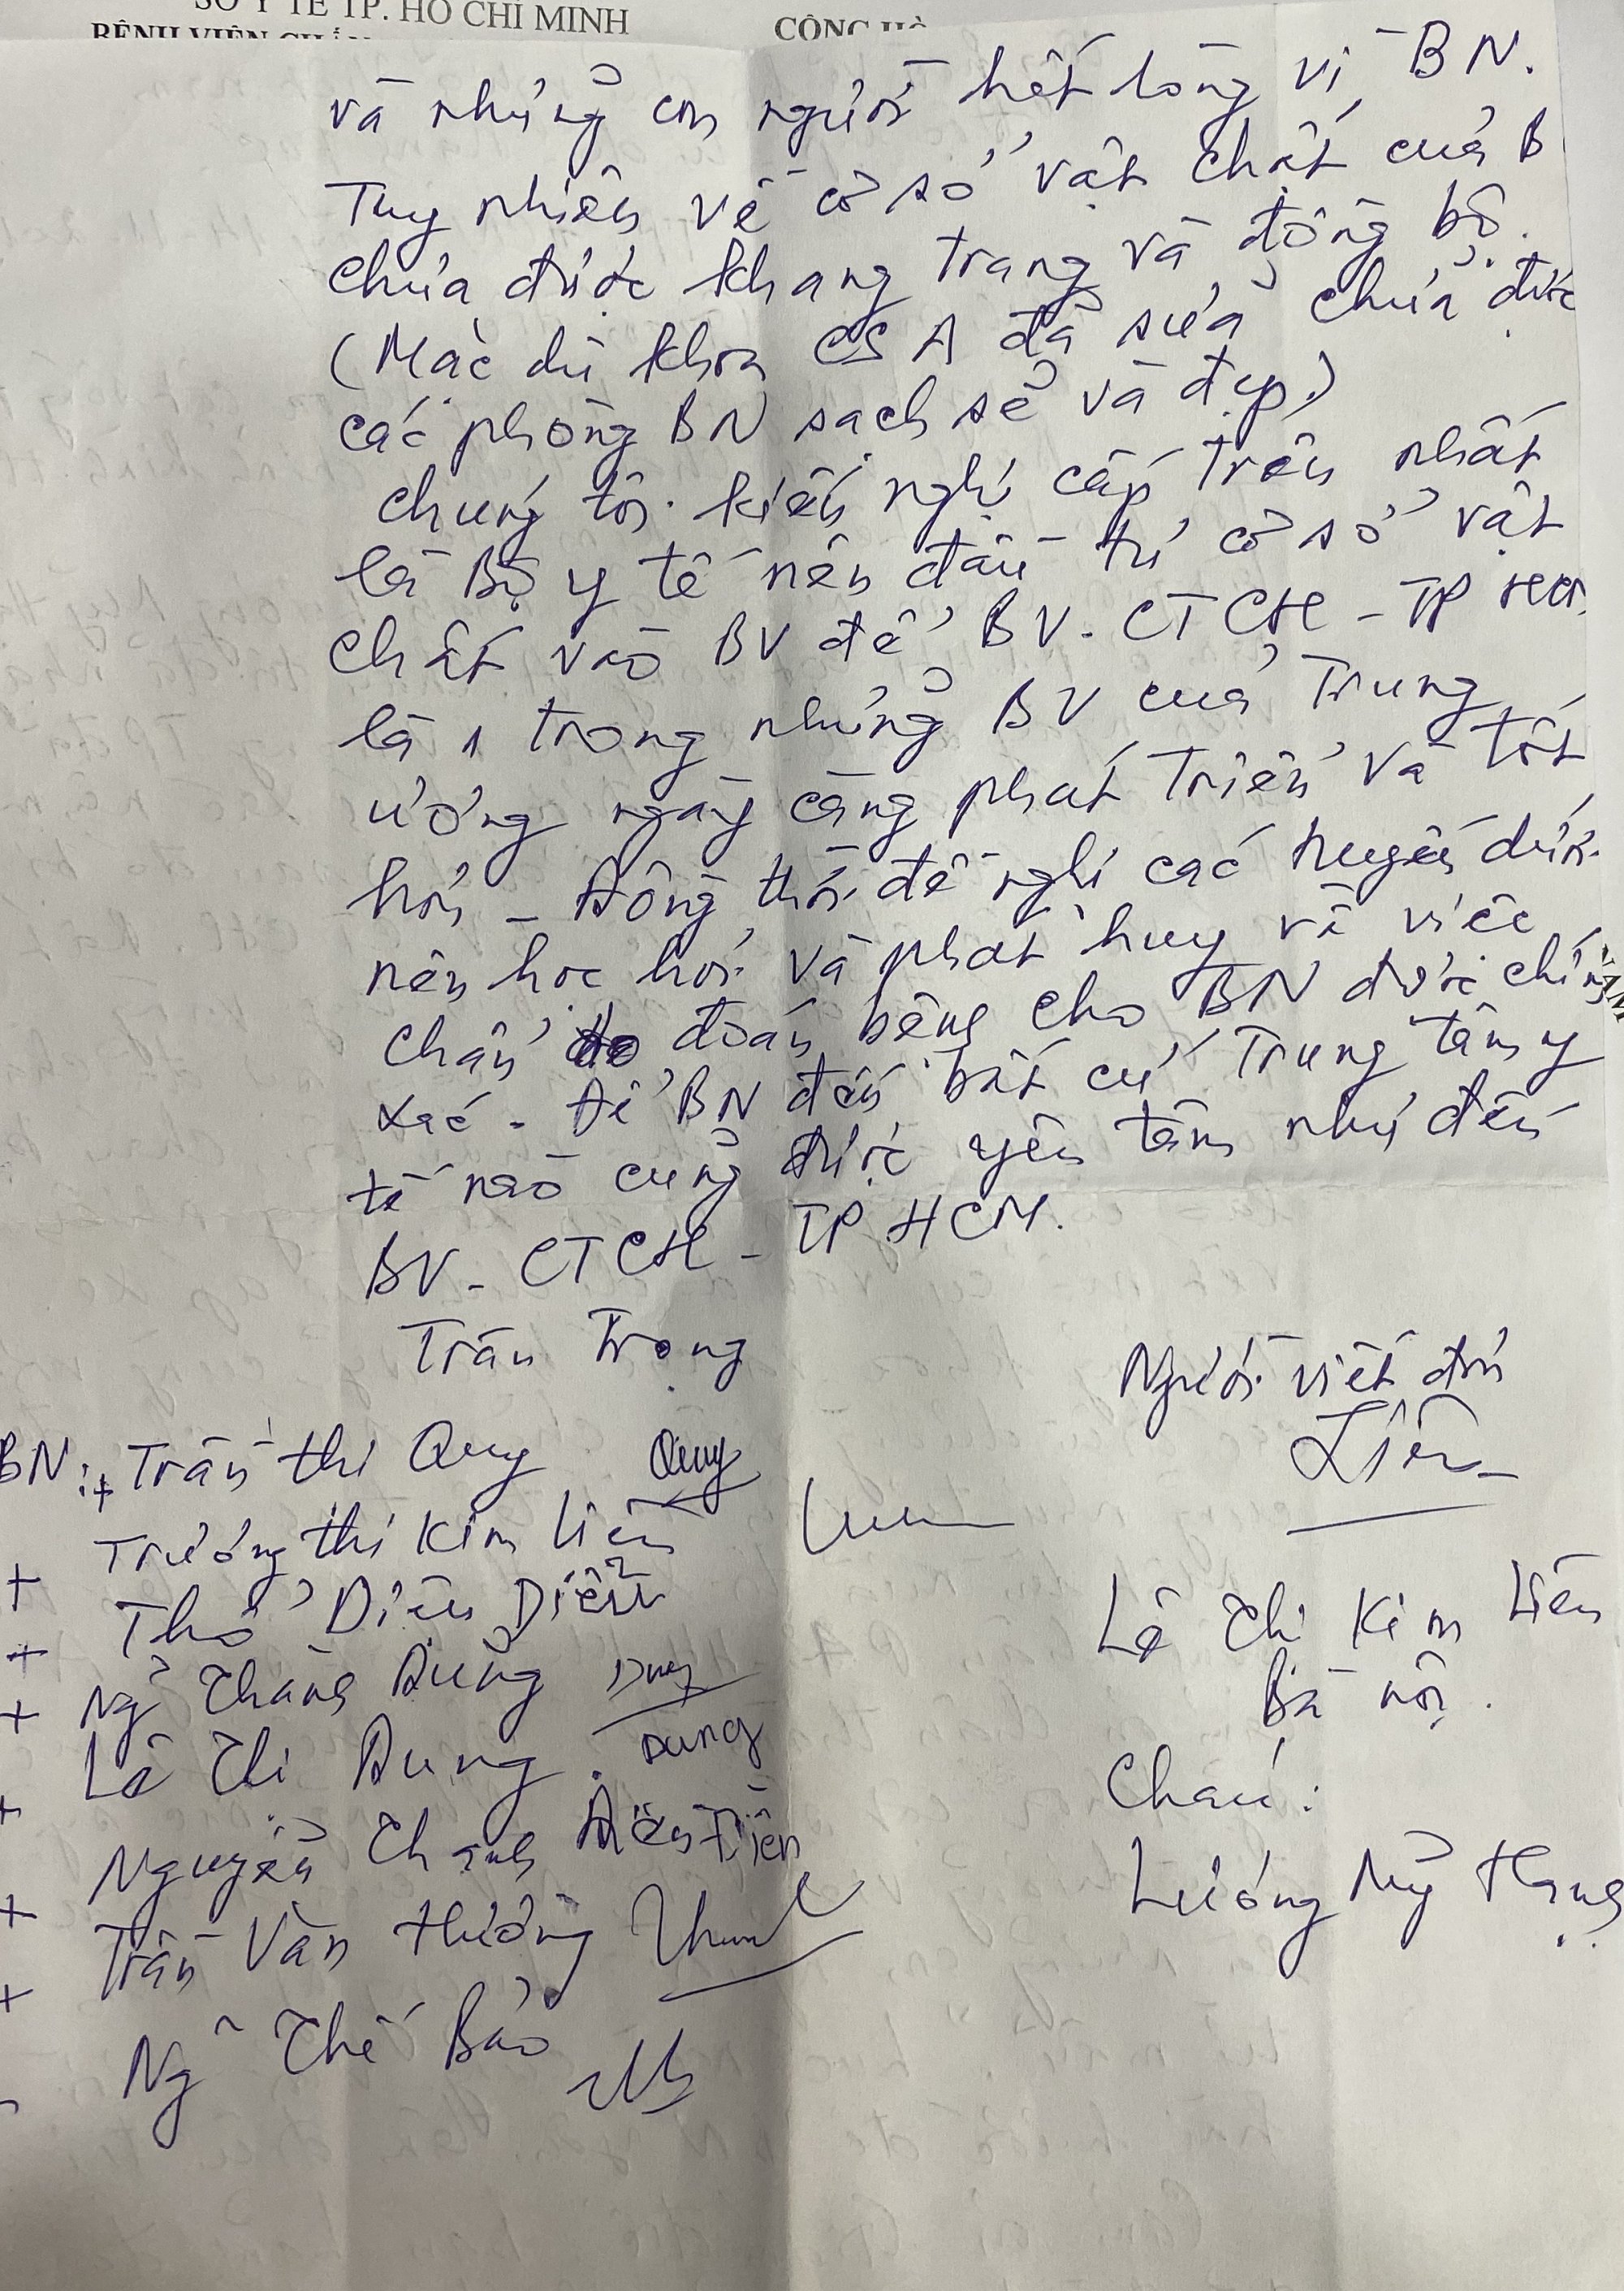 SỞ Y TẾ TP. HỒ CHÍ MINH
BỆNH VIỆN CHẤN
CỘNG HÒ
và những con người hết lòng vì BN.
Tuy nhiên về cơ sở vật chất của B
chưa được khang trang và đồng bộ.
(Mặc dù khoa CS A đã sửa chữa được
các phòng BN sạch sẽ và đẹp)
chúng tôi kiến nghị cấp trên nhất
là Bộ y tế nên đầu tư cơ sở vật
chất vào BV để BV. CTCH - TP HCM
là 1 trong những BV của Trung
ương ngày càng phát triển và tốt
hơn - Đồng thời đề nghị các tuyến dưới
nên học hỏi và phát huy về việc
chẩn đoán bệnh cho BN được chính
xác - Để BN đến bất cứ Trung tâm y
tế nào cũng được yên tâm như đến
BV - CTCH - TP HCM.
Trân Trọng
Người viết đơn
Liên
BN: + Trần thị Quy Quy
+ Trương thị Kim Liên
+ Thổ Diệu Diễn
+ Ng Thành Dũng Dung
+ Lê Thị Dung. Dung
+ Nguyễn Thanh Điền Điền
+ Trần Văn Thường
Ng Thế Bảo
Lê Thị Kim Liên
Bà nội.
Cháu:
Lương Mỹ Hạng